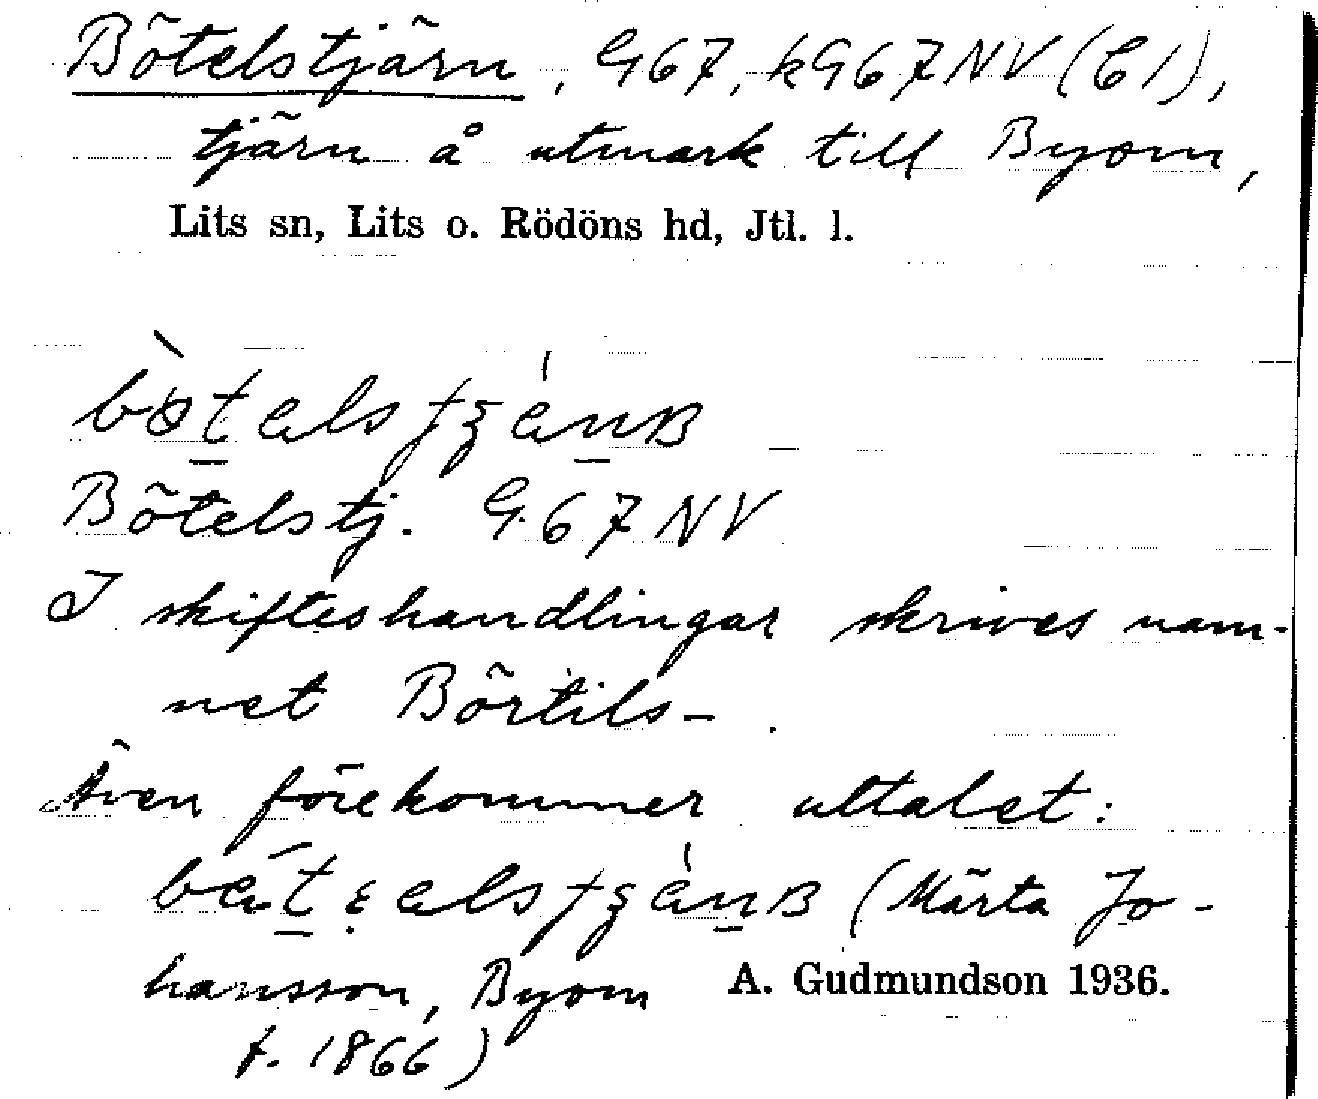 Bötelstjärn, G67, kG67NV (C1),
tjärn å utmark till Byom,
Lits sn, Lits o. Rödöns hd, Jtl. l.
Bötelstj. G67NV
I skifteshandlingar skrives nam-
net Börtils-.
Även förekommer uttalet:
(Märta Jo-
hansson, Byom
f. 1866)
A. Gudmundson 1936.